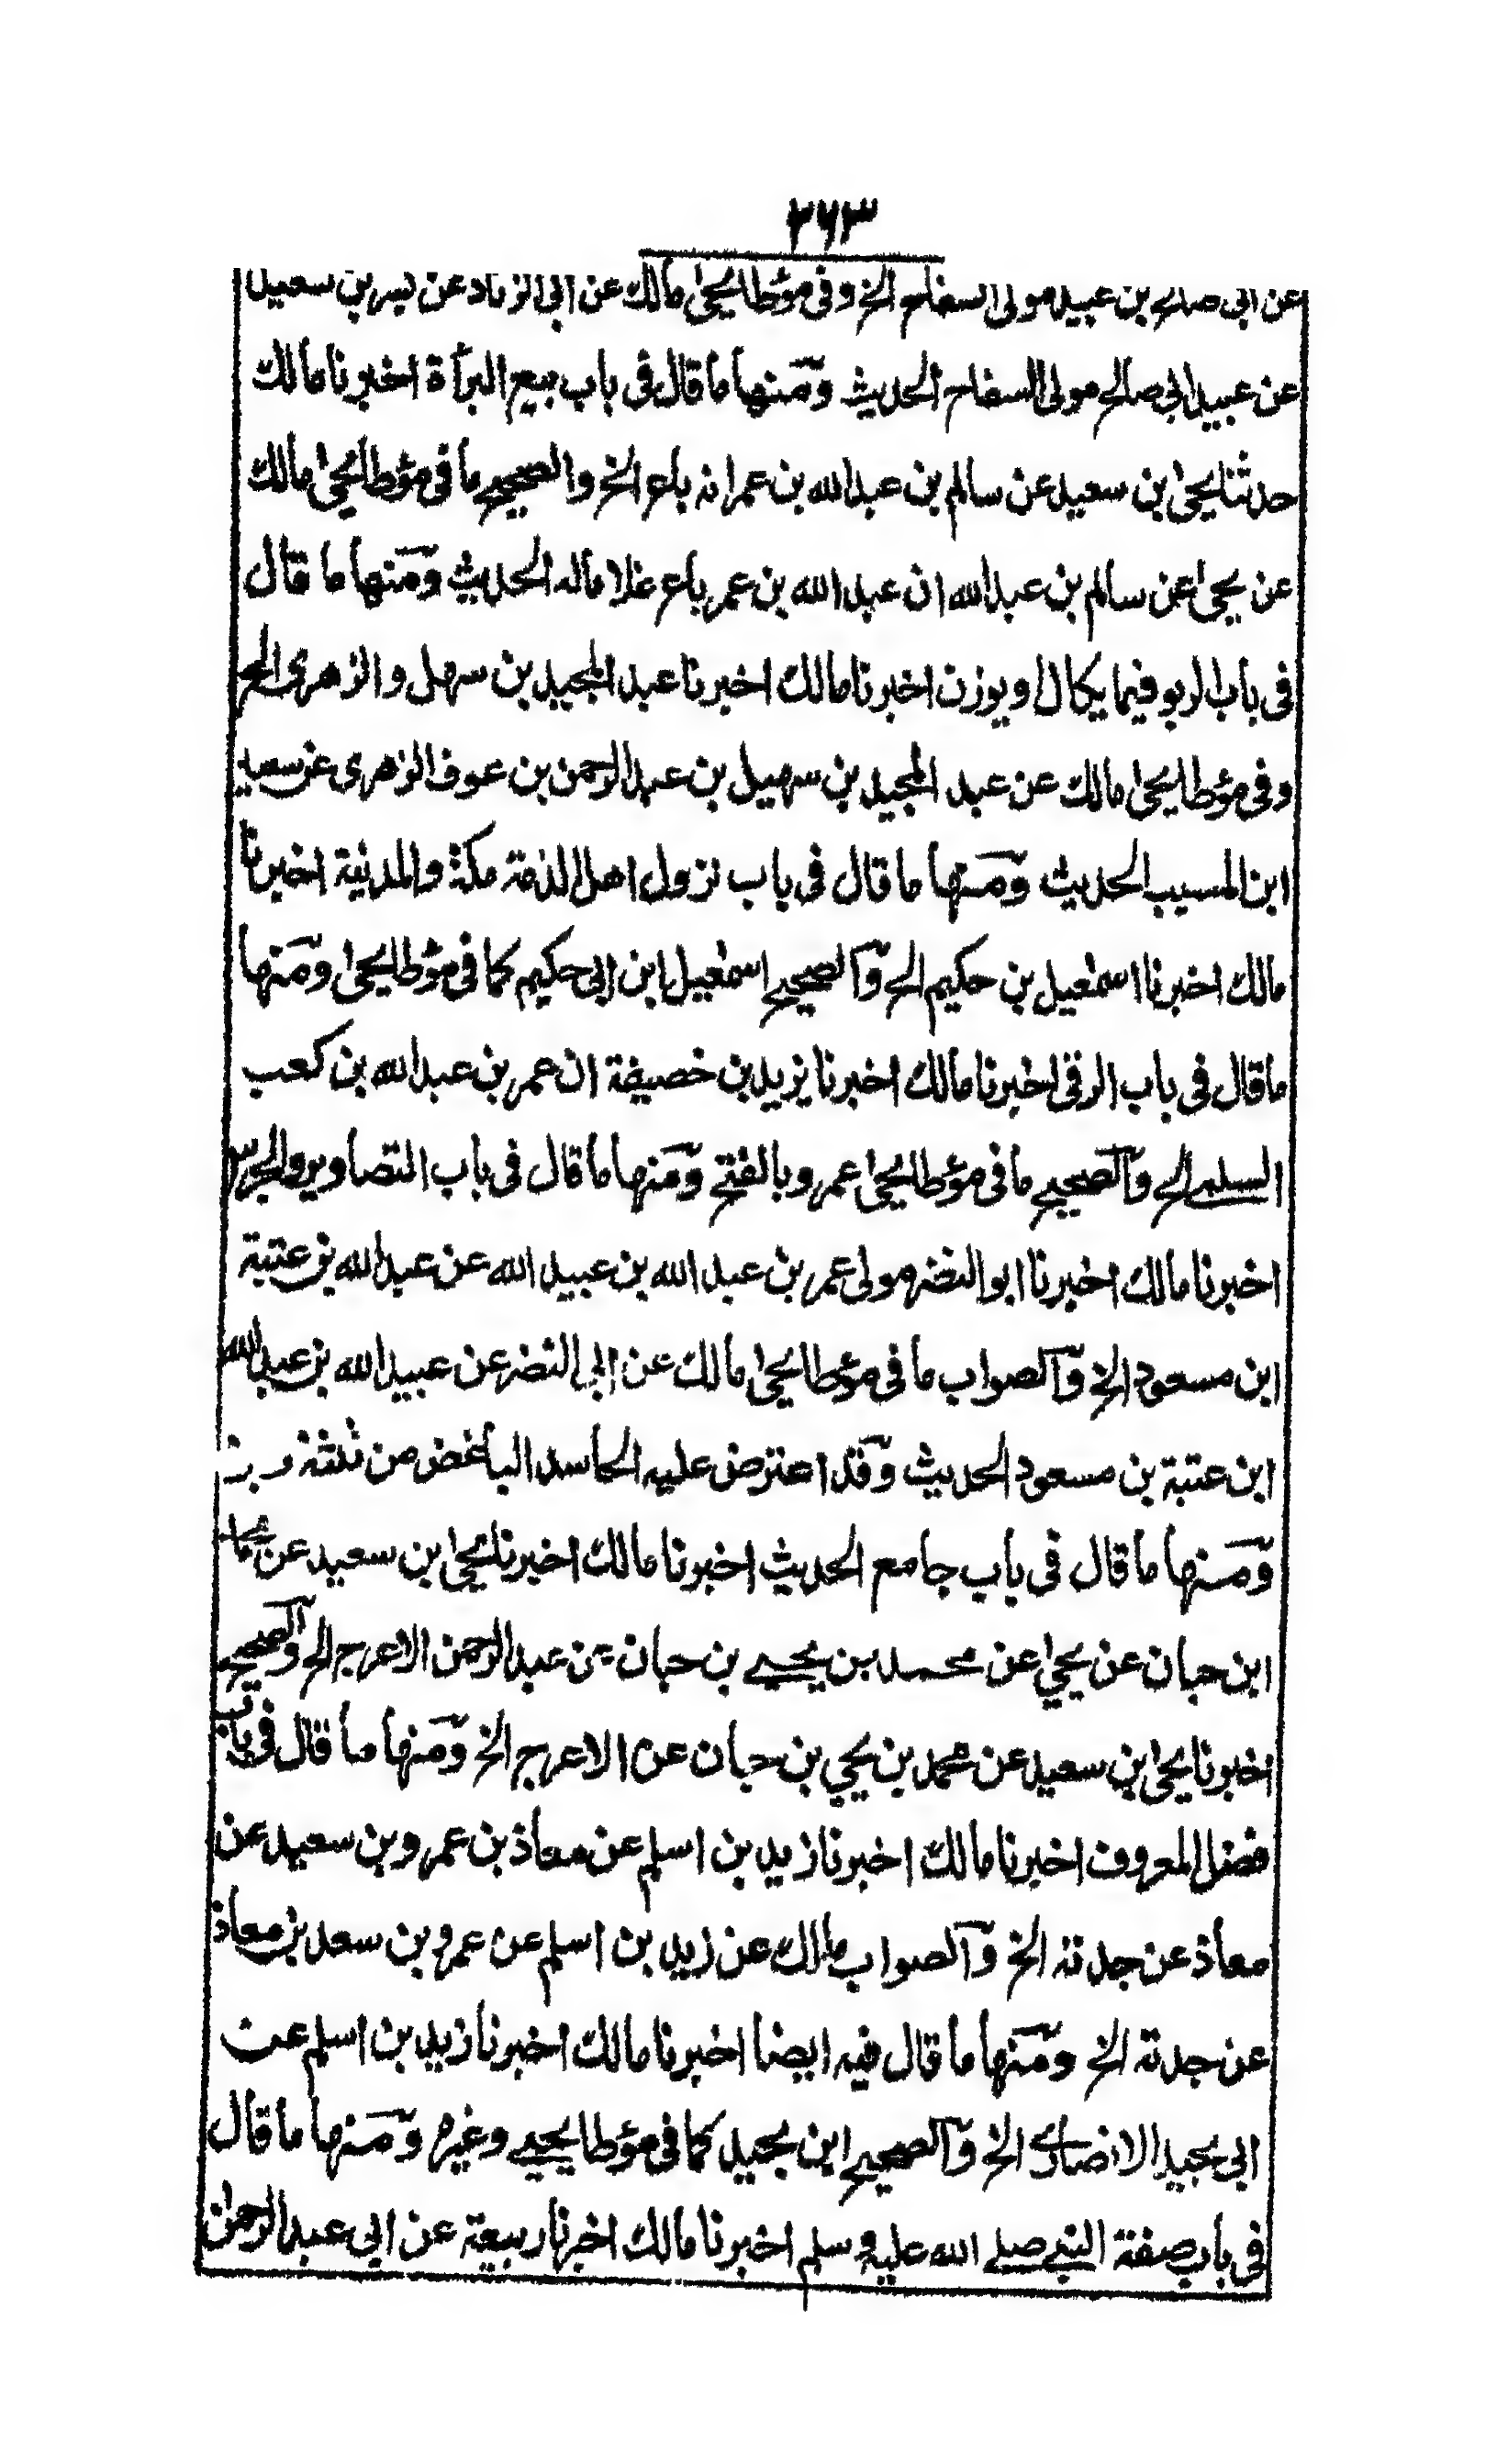 ٣٦٣
عن ابى صالح بن عبيد مولى السفاح الخ وفى مؤطا يحيى مالك عن ابى الزناد عن بسر بن سعيد
عن عبيد ابى صالح مولى السفاح الحديث ومنها ما قال فى باب بيع البرأة اخبرنا مالك
حدثنا يحيى بن سعيد عن سالم بن عبدالله بن عمر انه باع الخ والصحيح ما فى مؤطا يحيى مالك
عن يحيى عن سالم بن عبدالله ان عبدالله بن عمر باع غلاما له الحديث ومنها ما قال
فى باب الربو فيما يكال او يوزن اخبرنا مالك اخبرنا عبد المجيد بن سهل والزهرى الخ
وفى مؤطا يحيى مالك عن عبد المجيد بن سهيل بن عبد الرحمن بن عوف الزهرى عن سعيد
ابن المسيب الحديث ومنها ما قال فى باب نزول اهل الذمة مكة والمدينة اخبرنا
مالك اخبرنا اسمعيل بن حكيم الخ والصحيح اسمعيل ابن ابى حكيم كما فى مؤطا يحيى ومنها
ما قال فى باب الرقى اخبرنا مالك اخبرنا يزيد بن خصيفة ان عمر بن عبدالله بن كعب
السلمى الخ والصحيح ما فى مؤطا يحيى عمرو بالفتح ومنها ما قال فى باب التصاوير والجرس
اخبرنا مالك اخبرنا ابو النضر مولى عمر بن عبد الله بن عبيد الله عن عبدالله بن عتبة
ابن مسعود الخ والصواب ما فى مؤطا يحيى مالك عن ابى النضر عن عبيد الله بن عبد الله
ابن عتبة بن مسعود الحديث وقد اعترض عليه الحاسد الباغض من ثلثة
ومنها ما قال فى باب جامع الحديث اخبرنا مالك اخبرنا يحيى بن سعيد عن محمد
ابن حبان عن يحيى عن محمد بن يحيى بن حبان عن عبد الرحمن الاعرج الخ والصحيح
اخبرنا يحيى بن سعيد عن محمد بن يحيى بن حبان عن الاعرج الخ ومنها ما قال فى باب
فضل المعروف اخبرنا مالك اخبرنا زيد بن اسلم عن معاذ بن عمرو بن سعيد عن
معاذ عن جدته الخ والصواب مالك عن زيد بن اسلم عن عمرو بن سعد بن معاذ
عن جدته الخ ومنها ما قال فيه ايضا اخبرنا مالك اخبرنا زيد بن اسلم عن
ابى بجيد الانصارى الخ والصحيح ابن بجيد كما فى مؤطا يحيى وغيره ومنها ما قال
فى باب صفة النبى صلى الله عليه وسلم اخبرنا مالك اخبرنا ربيعة عن ابى عبد الرحمن